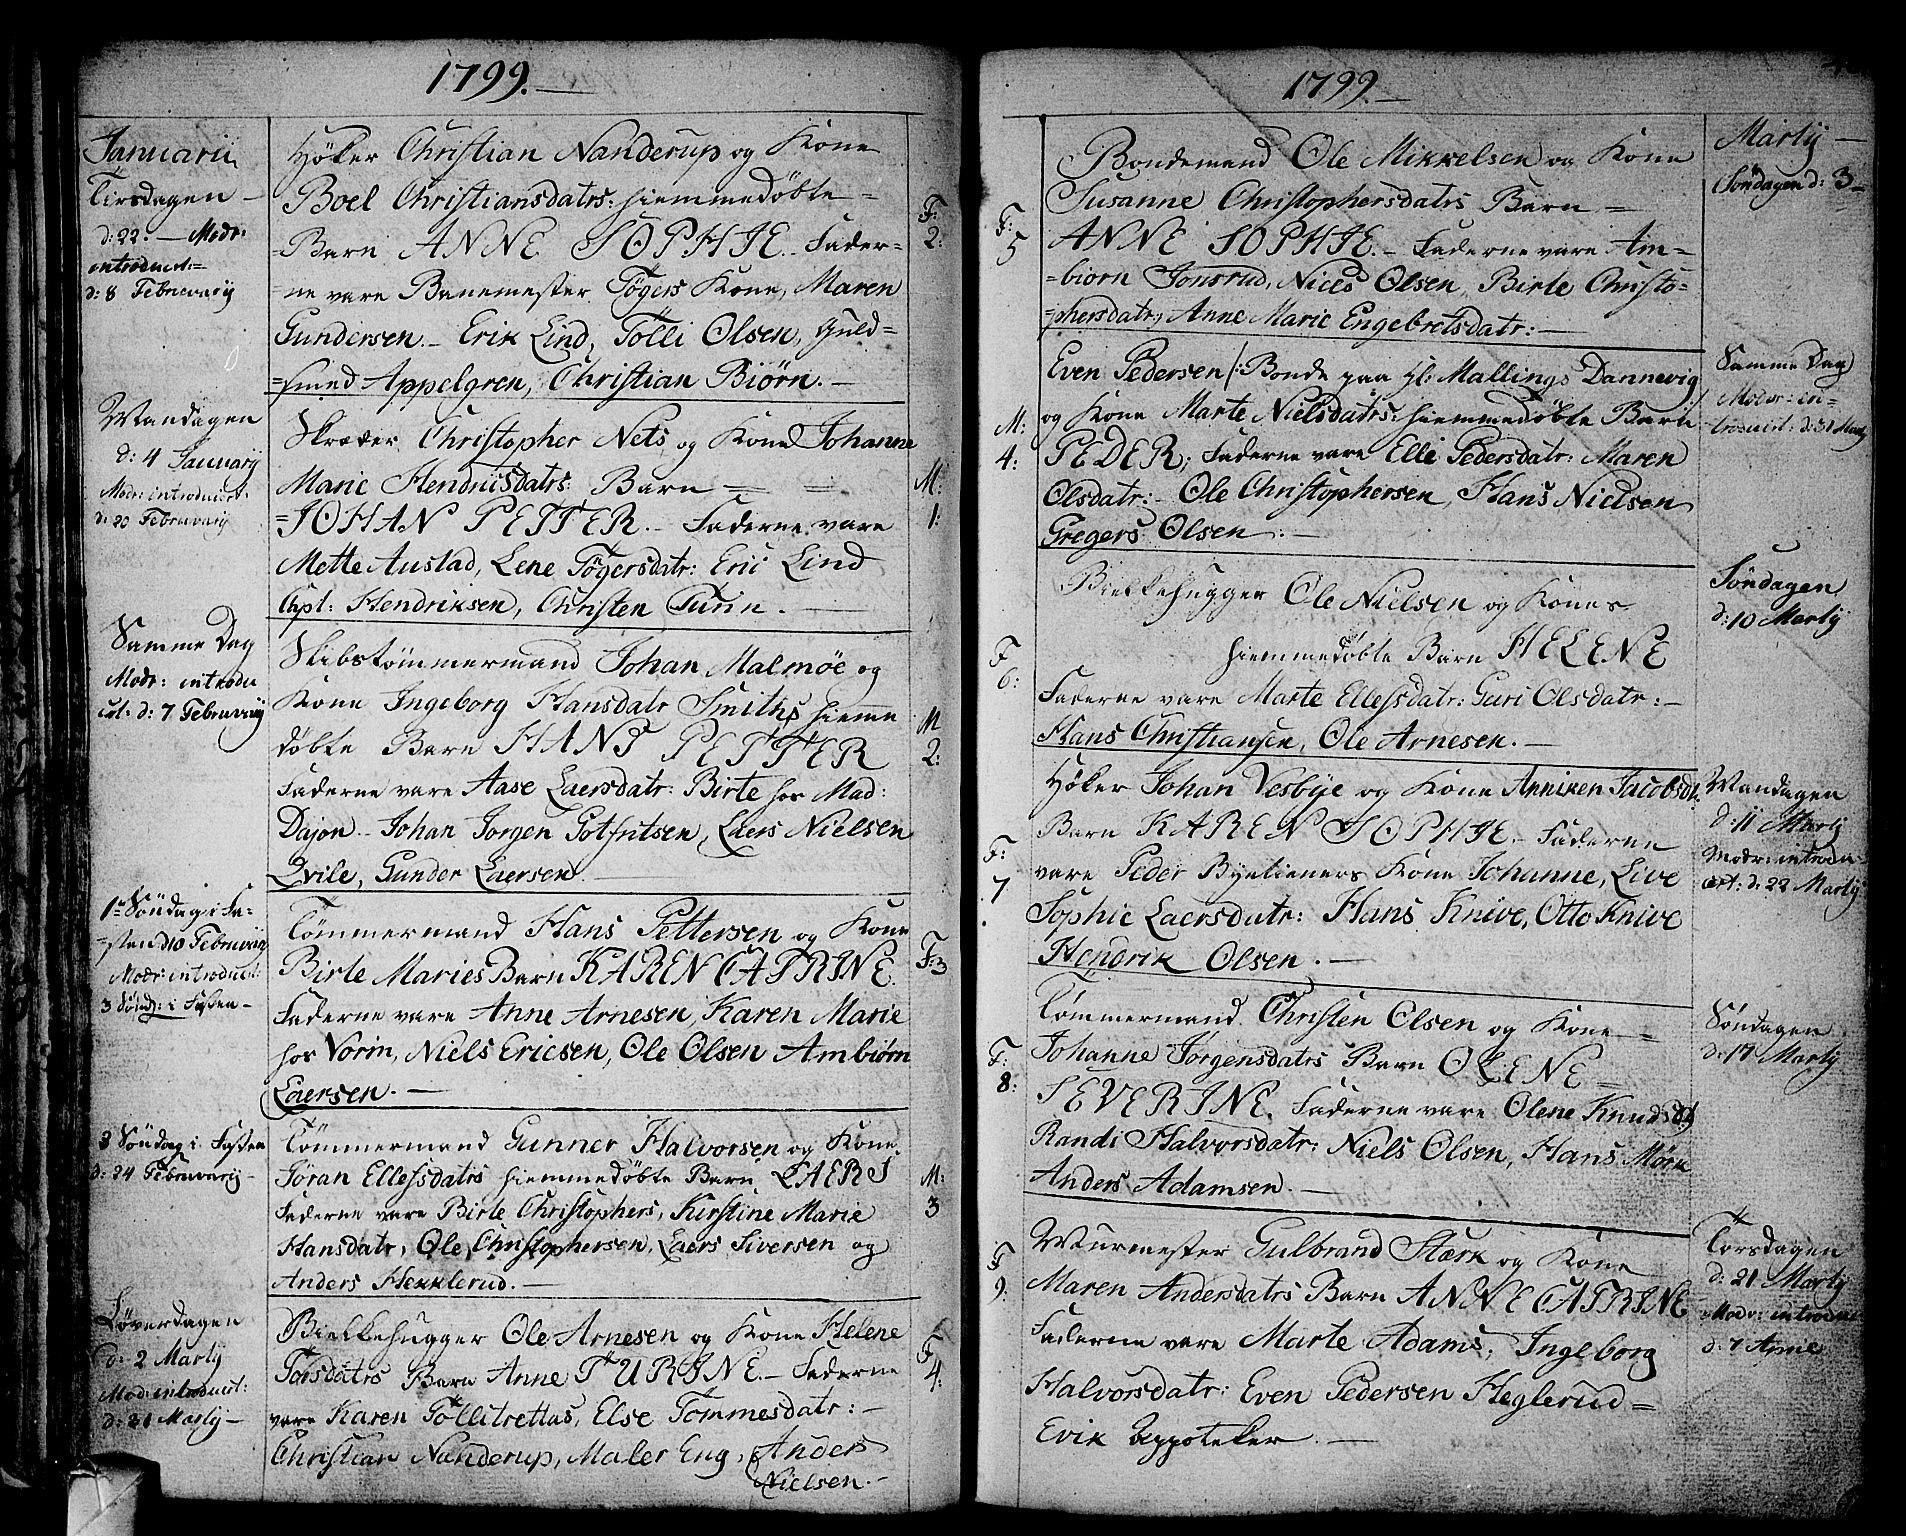 1799.
Januarii
Tirsdagen
d: 22. — Modr:
introducit:
d: 8 Februarij
Høker Christian Nanderup og Kone
Boel Christiansdatrs: hiemmedøbte =
=Barn ANNE SOPHIE. Fader=
=ne vare Banemester Tøgers Kone, Maren
Gundersen. — Erik Lind, Tölli Olsen, Guld=
=smed Appelgren, Christian Biørn. —
F:
2:
Mandagen
d: 4 Januarij
Modr: introducit:
d: 20 Februarij
Skræder Christopher Nets og Kone Johanne
Marie Hendricsdatrs: Barn =
=JOHAN PETTER. — Faderne vare
Mette Austad, Lene Tøgersdatr: Eric Lind
Cpt: Hendriksen, Christen Turin. —
M:
1:
Samme Dag
Modr: introdu
cit: d: 7 Februarij
Skibstømmermand Johan Malmøe og
Kone Ingeborg Hansdatr Smiths hiemme
døbte Barn HANS PETTER
Faderne vare Aase Laersdatr: Birte hos Mad:
Dajon — Johan Jørgen Gotfritsen, Laers Nielsen
Qvile, Gunder Laersen.
M
2:
1ste Søndag i Fa=
=sten d 10 Februarij
Modr: introducit:
3 Sønd: i Fasten —
Tømmermand Hans Pettersen og Kone
Birte Maries Barn KAREN CATRINE.
Faderne vare Anne Arnesen, Karen Marie
hos Vorin, Niels Ericsen, Ole Olsen Ambiørn
Laersen. —
F: 3
3 Søndag i Fasten
d: 24 Februarij —
Tømmermand Gunner Halvorsen og Kone
Jøran Ellefsdatrs hiemmedøbte Barn LAERS
Faderne vare Birte Christophers, Kirstine Marie
Hansdatr, Ole Christophersen, Laers Siversen og
Anders Hekklerud. —
M:
3
Løverdagen
d: 2 Martij
Mod: introducit:
d: 31 Martij —
Bielkehugger Ole Arnesen og Kone Helene
Torsdatrs Barn Anne THURINE. — Faderne
vare Karen Töllitrettas, Else Tommesdatr: —
Christian Nanderup, Maler Eng, Anders
Nielsen. —
F
4:
1799.
F:
5
Bondemand Ole Mikkelsen og Kone
Susanne Christophersdatrs Barn =
ANNE SOPHIE. — Faderne vare Am=
=biorn Jonsrud, Niels Olsen, Birte Christo=
=phersdatr, Anne Marie Engebretsdatr: —
Martij —
Søndagen d: 3 —
M:
4:
Even Pedersen /: Bonde paa Hl: Mallings Dannevig
og Kone Marte Nielsdatrs: hiemmedøbte Barn
PEDER; Faderne vare Elli Pedersdatr: Maren
Olsdatr: — Ole Christophersen, Hans Nielsen
Gregers Olsen: —
Samme Dag
Modr: in=
troducit: d: 31 Martij
F
6:
Bielkehugger Ole Nielsen og Kones
hiemmedøbte Barn HELENE
Faderne vare Marte Ellefsdatr: Guri Olsdatr: —
Hans Christiansen, Ole Arnesen. —
Søndagen
d: 10 Martij
F:
7
Høker Johan Vesbye og Kone Anniken Jacobsdr
Barn KAREN SOPHIE. — Faderne
vare Peder Bytieners Kone Johanne, Live
Sophie Laersdatr: Hans Knive, Otto Knive
Hendrik Olsen. —
Mandagen
d: 11 Martij
Modr: introdu=
cit: d: 22 Martij
F:
8:
Tømmermand Christen Olsen og Kone =
Johanne Jørgensdatrs Barn OLENE =
SEVERINE. Faderne vare Olene Knudsdr
Randi Halvorsdatr: Niels Olsen, Hans Mørk
Anders Adamsen. —
Søndagen
d: 17 Martij
F
9:
Muurmester Gulbrand Stærk og Kone
Maren Andersdatrs Barn ANNE CATRINE
Faderne vare Marte Adams, Ingeborg
Halvorsdatr: Even Pedersen Heglerud =
Erik Appoteker. —
Torsdagen
d: 21 Martij
Modr: introduc
d: 7